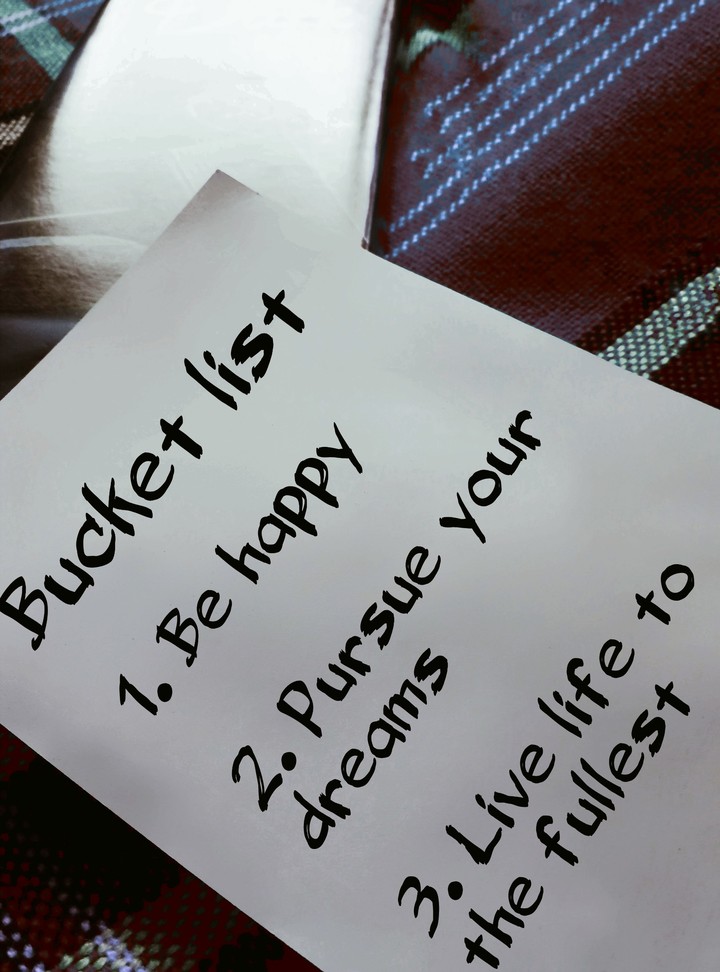 Bucket list
1. Be happy
2. Pursue your
dreams
3. Live life to
the fullest